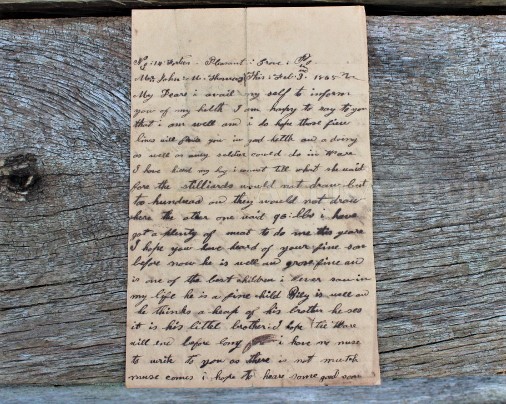 Mr. John M. Thomas This Feb 3. 1865
My Dear i avail my self to inform
you of my helth I am happy to say to you
that i am well an i do hope those fiew
lines will find you in good helth an a doing
as well as eny solder could do in Ware
I have kild my hog i cannot till what she waid
fore the stilliards would not draw but
to hundread an they would not draw
here the other one waid 90 lbs i have
got a plenty of meat to do me this yeare
I hope you have heard of your fine son
before now he is well an grose fine an
is are of the best children i never saw in
my life he is a fine child is well an
he thinks a heap of his brother he ses
it is his littel brother I hope the Ware
will end before long i have no nuse
to write to you as there is not mutch
nuse comes i hope to heare some good soon